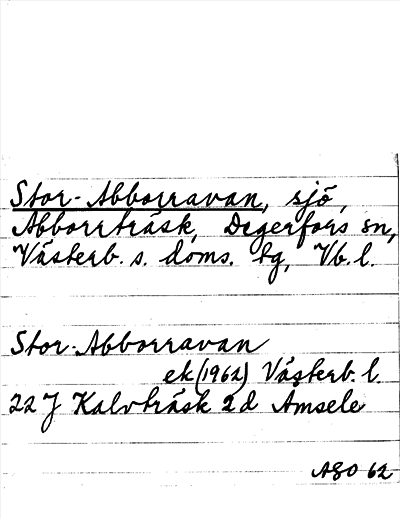 Stor-Abborravan, sjö,
Abborrträsk, Degerfors sn,
Västerb. s. doms. tg, Vb. l.
Stor-Abborravan
ek (1962) Västerb. l.
22 J Kalvträsk 2 d Amsele
AGO 62